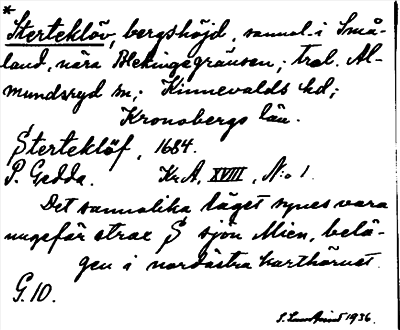 *
Sterteklöv, bergshöjd, sannol. i Små-
land, nära Blekingegränsen; trol. Al-
mundsryd sn; Kinnevalds hd;
Kronobergs län.
Sterteklöf, 1684.
P. Gedda. Kr.A, XVIII, N:o 1.
Det sannolika läget synes vara
ungefär strax S sjön Mien, belä-
gen i nordöstra karthörnet.
G. 10.
1936.